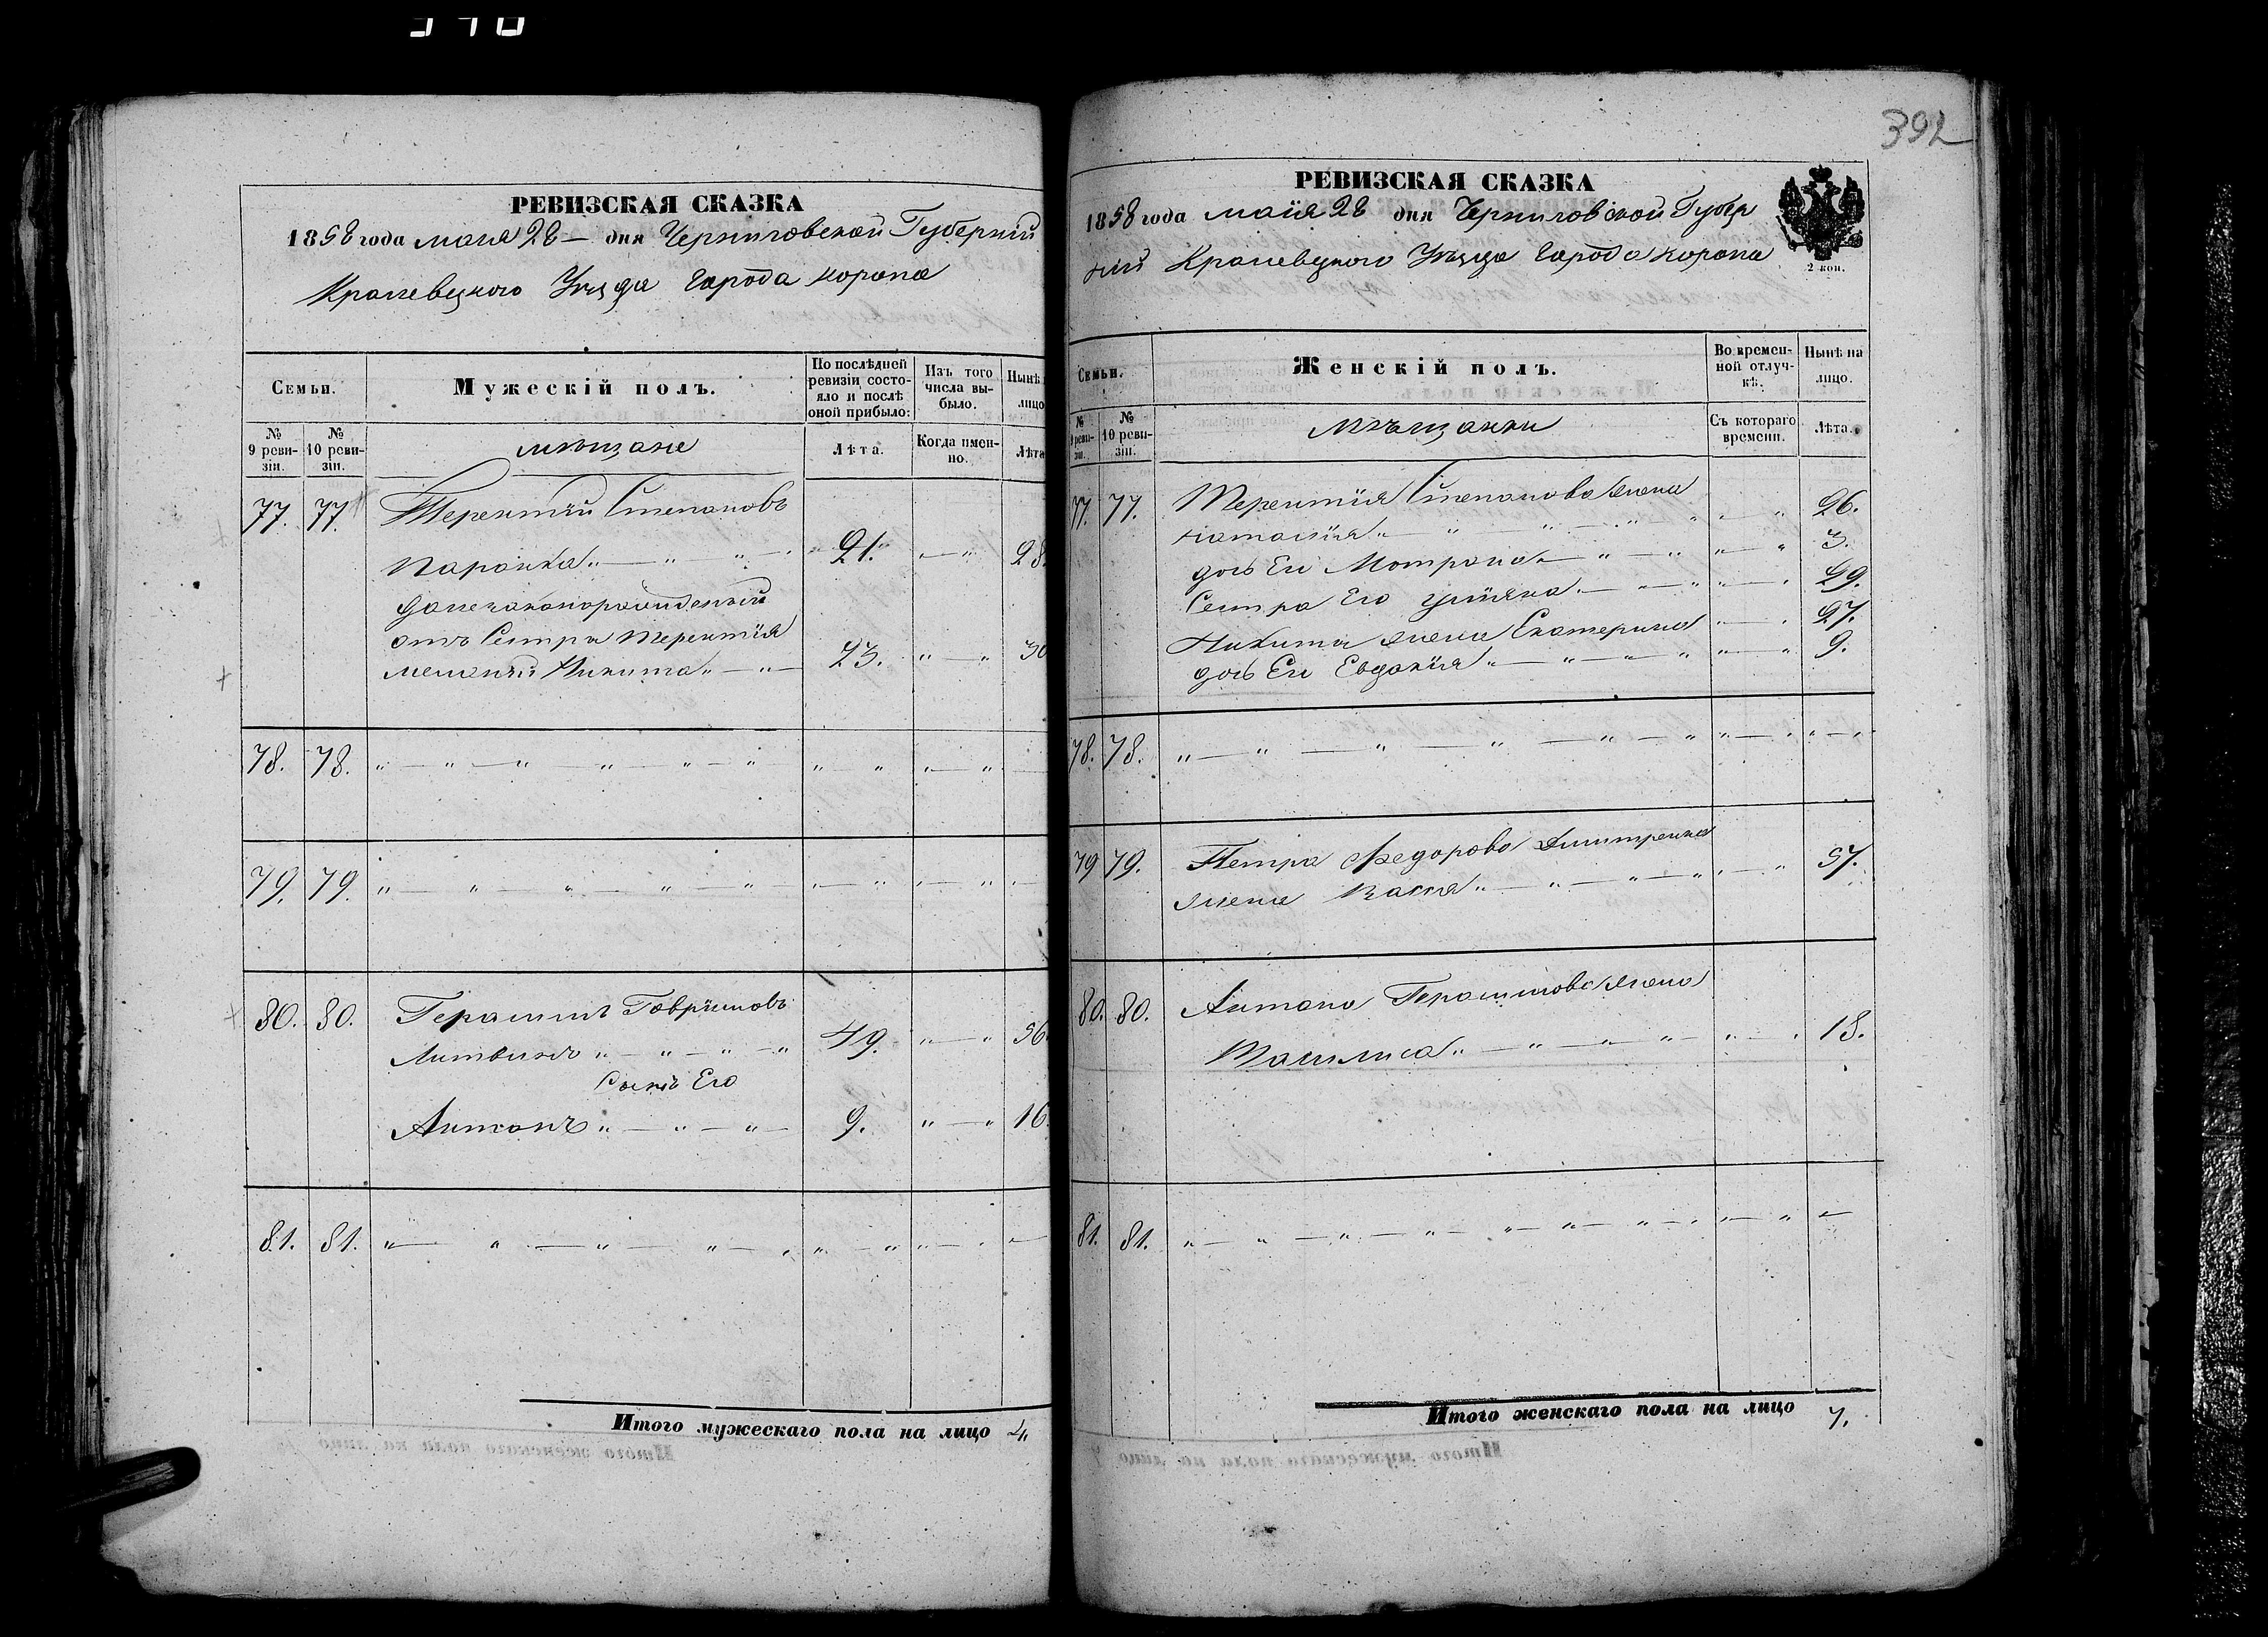 392
РЕВИЗСКАЯ СКАЗКА
1858 года мая 28 — дня Черниговской Губерній
Кролевецкого Уѣзда Города Коропа
Семьи.
Мужескій полъ.
По послѣдней ревизіи состояло и послѣ оной прибыло:
Изъ того числа выбыло.
Нынѣ
лицо
№ 9 ревизіи.
№ 10 ревизіи.
мѣщане
Лѣта.
Когда именно.
Лѣта
77. 77. Терентій Степановъ
Паронка 21. 28.
отъ Сестры Терентія
Никита 23. 30
78. 78.
79. 79.
80. 80. Герасимъ Гавриловъ
Литвинъ 49. 56
Сынъ Его
Антонъ 9. 16.
81. 81.
Итого мужескаго пола на лицо 4.
РЕВИЗСКАЯ СКАЗКА
1858 года маія 28 дня Черниговской Губер
ніи Кролевецкого Уѣзда Города Коропа
2 коп.
Семьи.
Женскій полъ.
Во временной отлучкѣ.
Нынѣ на лицо.
№ 9 ревизіи.
№ 10 ревизіи.
Мѣщанки
Съ котораго времени.
Лѣта.
77. 77. Терентія Степанова жена
Наталія 26.
дочь Ея Мотрона 3.
Сестра Его Уліяна 29.
Никиты жена Екатерина 27.
дочь Ея Евдокія 9.
78. 78.
79 79. Петра Федорова Дмитренка
жена Васса 57.
80. 80. Антона Герасимова жена
Василиса 18.
81. 81.
Итого женскаго пола на лицо 7.